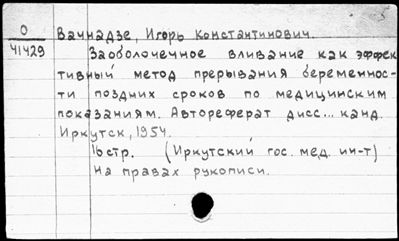 О
41429
Вачнадзе, Игорь Константинович.
Заоболочечное вливание как эффек
тивный метод прерывания беременнос-
ти поздних сроков по медицинским
показаниям. Автореферат дисс... канд.
Иркутск, 1954.
16стр. (Иркутский гос. мед. ин-т)
На правах рукописи.